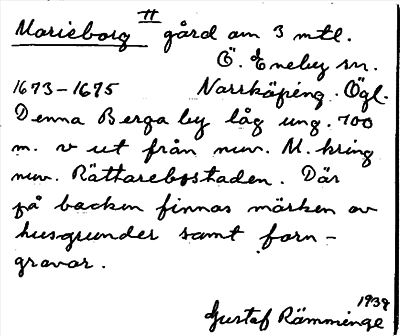 Marieborg II gård om 3 mtl.
Ö. Eneby sn.
1673-1675 Norrköping. Ögl.
Denna Berga by låg ung. 700
m. v ut från nuv. M. kring
nuv. Rättarebostaden. Där
på backen finnas märken av
husgrunder samt forn-
gravar.
1939
Gustaf Rämminge